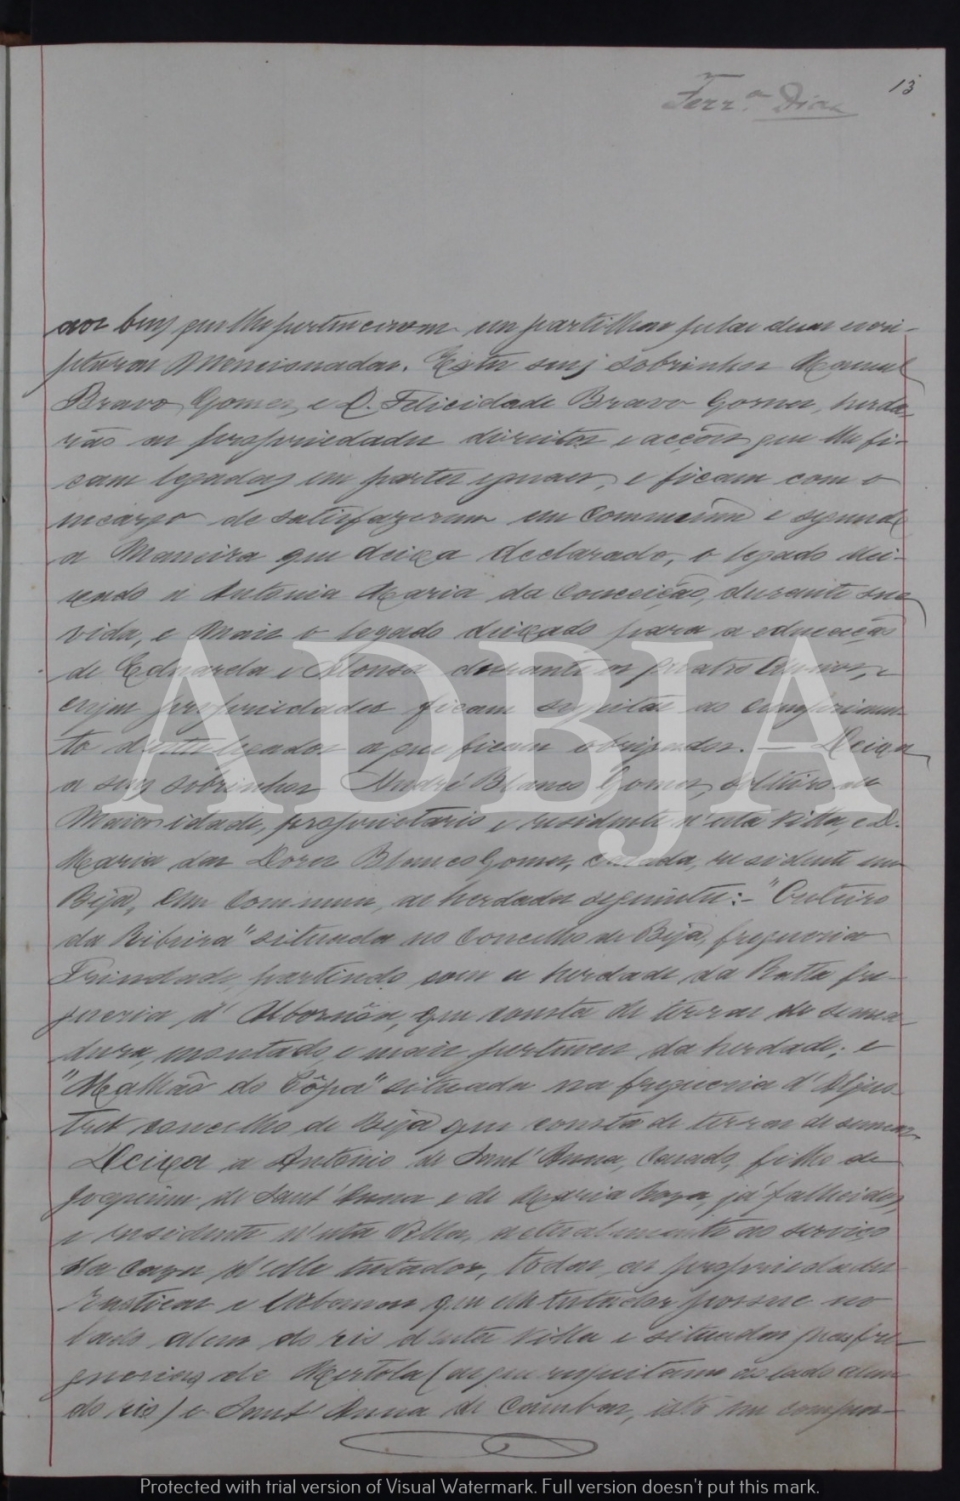 13
Ferr.ª Dias
aos bens que lhe pertenceram em partilhas pelas duas escri-
pturas mencionadas. Estes seus sobrinhos Manuel
Bravo Gomes, e D. Felicidade Bravo Gomes, herda-
rão as propriedades direitos e acções que lhe fi-
cam legados em partes eguaes, e ficam com o
encargo de satisfazerem em commum e segundo
a maneira que deixa declarado, o legado dei-
xado a Antonia Maria da Conceição, durante sua
vida, e mais o legado deixado para a educação
de Eduarda e Afonso durante os quatro annos, e
cujas propriedades ficam sujeitas ao cumprimen-
to destes legados a que ficam obrigados. — Deixa
a seus sobrinhos André Blanco Gomes, solteiro de
maior idade, proprietario e residente n'esta Villa, e D.
Maria das Dores Blanco Gomes, casada, residente em
Beja, em commum, as herdades seguintes: - "Outeiro
da Ribeira" situada no Concelho de Beja, freguesia
Trindade, partindo com a herdade da Ratta fre-
guesia d'Albornôa, que consta de terras de semea-
dura, montado, e mais pertences da herdade; e
"Malhão do Côpa" situada na freguesia d'Aljus-
trel concelho de Beja que consta de terras de semear
Deixa a Antonio de Sant'Anna, casado, filho de
Joaquim de Sant'Anna e de Maria Rosa, já fallecidos,
e residente n'esta Villa, actualmente ao serviço
da casa d'elle testador, todas as propriedades
rusticas e urbanas que elle testador possue no
lado alem do rio d'esta Villa e situadas nas fre-
guesias de Mertola (as que respeitam ao lado alem
do rio) e Sant'Anna de Cambas, isto em compen-
ADBJA
Protected with trial version of Visual Watermark. Full version doesn't put this mark.